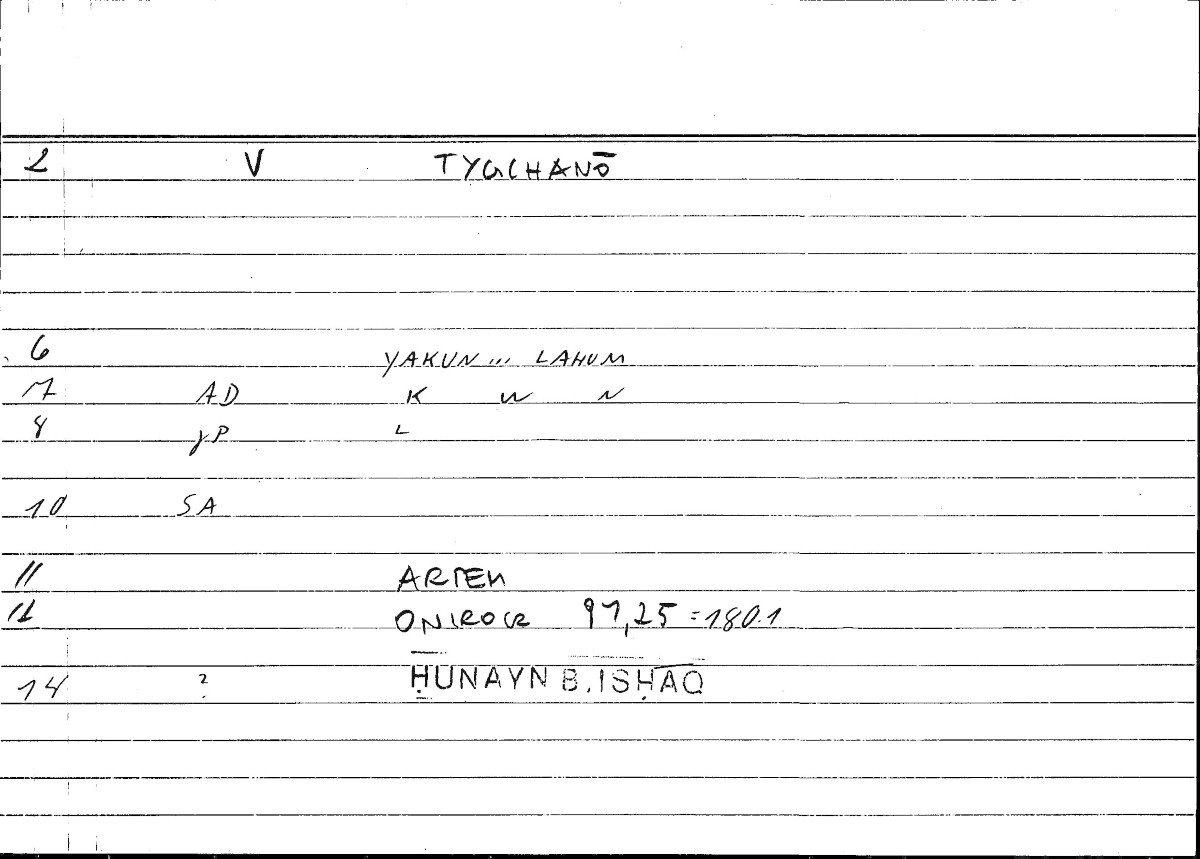 2 V TYGCHANŌ
6 YAKUN... LAHUM
7 AD K W N
8 JP L
10 SA
11 ARTEM
12 ONIROCR 91,25 = 180.1
14 ? ḤUNAYN B. ISḤĀQ